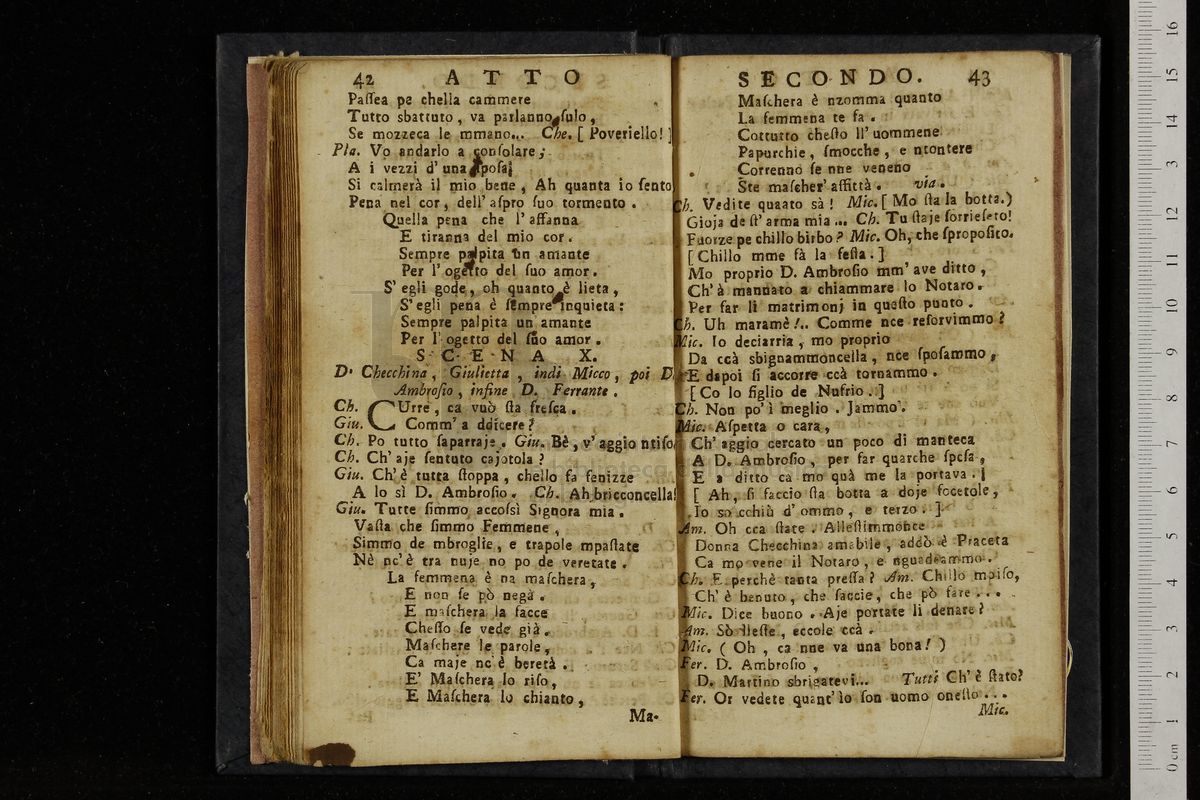 42 ATTO
Paſſea pe chella cammere
Tutto sbattuto, va parlanno ſulo,
Se mozzeca le mmano... Che. [ Poveriello! ]
Pla. Vo andarlo a conſolare;
A i vezzi d' una ſpoſa
Si calmerà il mio bene, Ah quanta io ſento
Pena nel cor, dell' aſpro ſuo tormento.
Quella pena che l' affanna
E tiranna del mio cor.
Sempre palpita un amante
Per l' ogetto del ſuo amor.
S' egli gode, oh quanto è lieta,
S' egli pena è ſempre inquieta:
Sempre palpita un amante
Per l' ogetto del ſuo amor.
SCENA X.
D. Checchina, Giulietta, indi Micco, poi D.
Ambroſio, infine D. Ferrante.
Ch. CUrre, ca vuò ſta freſca.
Giu. Comm' a ddicere?
Ch. Po tutto ſaparraje. Giu. Bè, v' aggio ntiſo
Ch. Ch' aje ſentuto cajotola?
Giu. Ch' è tutta ſtoppa, chello fa fenizze
A lo sì D. Ambroſio. Ch. Ah bricconcella!
Giu. Tutte ſimmo accoſsì Signora mia.
Vaſta che ſimmo Femmene,
Simmo de mbroglie, e trapole mpaſtate
Nè nc' è tra nuje no po de veretate.
La femmena è na maſchera,
E non ſe pò negà.
E maſchera la facce
Cheſſo ſe vede già.
Maſchere le parole,
Ca maje nc' è beretà.
E' Maſchera lo riſo,
E Maſchera lo chianto,
Ma-
SECONDO. 43
Maſchera è nzomma quanto
La femmena te fa.
Cottutto cheſto ll' uommene
Papurchie, ſmocche, e ntontere
Correnno ſe nne veneno
Ste maſcher' affittà. via.
Ch. Vedite quaato sà! Mic. [ Mo ſta la botta.)
Gioja de ſt' arma mia... Ch. Tu ſtaje ſorrieſeto!
Fuorze pe chillo birbo? Mic. Oh, che ſpropoſito.
[ Chillo mme fà la feſta. ]
Mo proprio D. Ambroſio mm' ave ditto,
Ch' à mannato a chiammare lo Notaro.
Per far li matrimonj in queſto punto.
Ch. Uh maramè!.. Comme nce reſorvimmo?
Mic. Io deciarria, mo proprio
Da ccà sbignammoncella, nce ſpoſammo,
E dapoi ſi accorre ccà tornammo.
[ Co lo figlio de Nufrio. ]
Ch. Non po' ì meglio. Jammo.
Mic. Aſpetta o cara,
Ch' aggio cercato un poco di manteca
A D. Ambroſio, per far quarche ſpeſa,
E a ditto ca mo quà me la portava.
[ Ah, ſi faccio ſta botta a doje focetole,
Io so cchiù d' ommo, e terzo. ]
Am. Oh cca ſtate. Alleſtimmonce
Donna Checchina amabile, addò è Praceta
Ca mo vene il Notaro, e nguadeammo.
Ch. E perchè tanta preſſa? Am. Chillo mpiſo,
Ch' è benuto, che faccie, che pò fare...
Mic. Dice buono. Aje portate li denare?
Am. Sò lleſte, eccole ccà.
Mic. ( Oh, ca nne va una bona! )
Fer. D. Ambroſio,
D. Martino sbrigatevi... Tutti Ch' è ſtato?
Fer. Or vedete quant' io ſon uomo oneſto...
Mic.